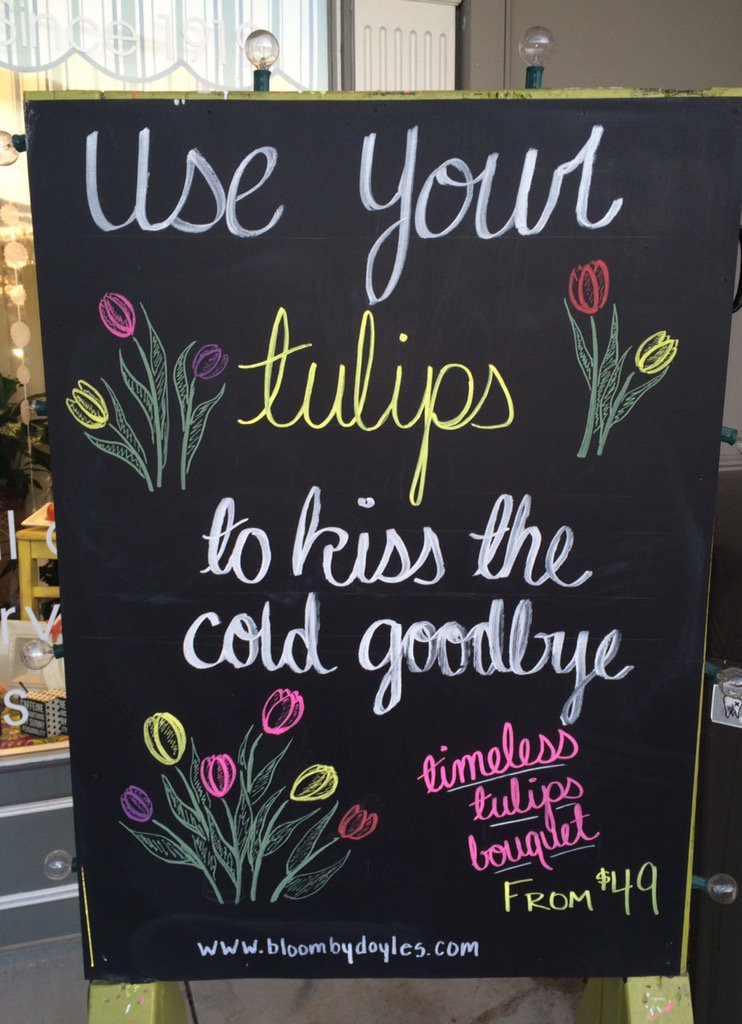 since 1919
use your
tulips
to kiss the
cold goodbye
timeless
tulips
bouquet
FROM $49
www.bloombydoyles.com